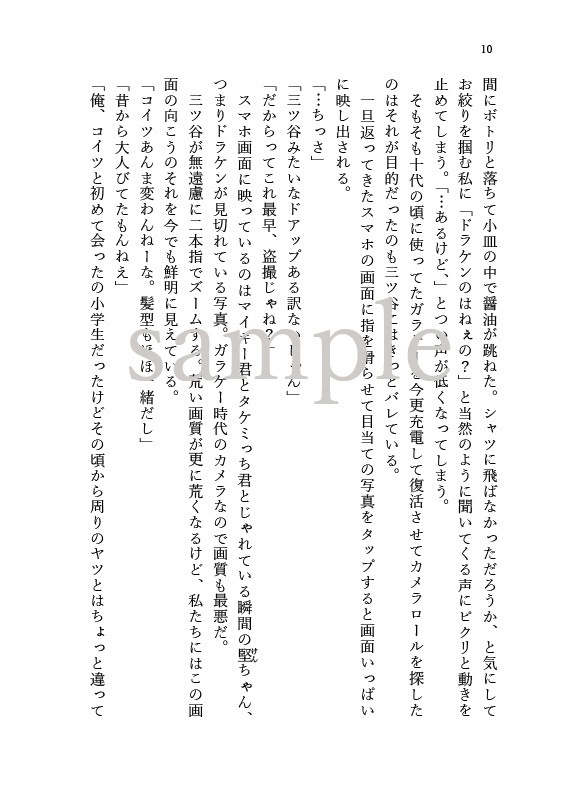 10
間にボトリと落ちて小皿の中で醤油が跳ねた。シャツに飛ばなかっただろうか、と気にして
お絞りを掴む私に「ドラケンのはねぇの？」と当然のように聞いてくる声にピクリと動きを
止めてしまう。「…あるけど、」とつい声が低くなってしまう。
そもそも十代の頃に使ってたガラ を今更充電して復活させてカメラロールを探した
のはそれが目的だったのも三ツ谷にはきっとバレている。
一旦返ってきたスマホの画面に指を滑らせて目当ての写真をタップすると画面いっぱい
に映し出される。
「…ちっさ」
「三ツ谷みたいなドアップある訳ないじゃん」
「だからってこれ最早、盗撮じゃね？」
スマホ画面に映っているのはマイキー君とタケミっち君とじゃれている瞬間の堅ちゃん、
けん
つまりドラケンが見切れている写真。ガラケー時代のカメラなので画質も最悪だ。
三ツ谷が無遠慮に二本指でズームする。荒い画質が更に荒くなるけど、私たちにはこの画
面の向こうのそれを今でも鮮明に見えている。
「コイツあんま変わんねーな。髪型もほぼ 緒だし」
「昔から大人びてたもんねえ」
「俺、コイツと初めて会ったの小学生だったけどその頃から周りのヤツとはちょっと違って
sample